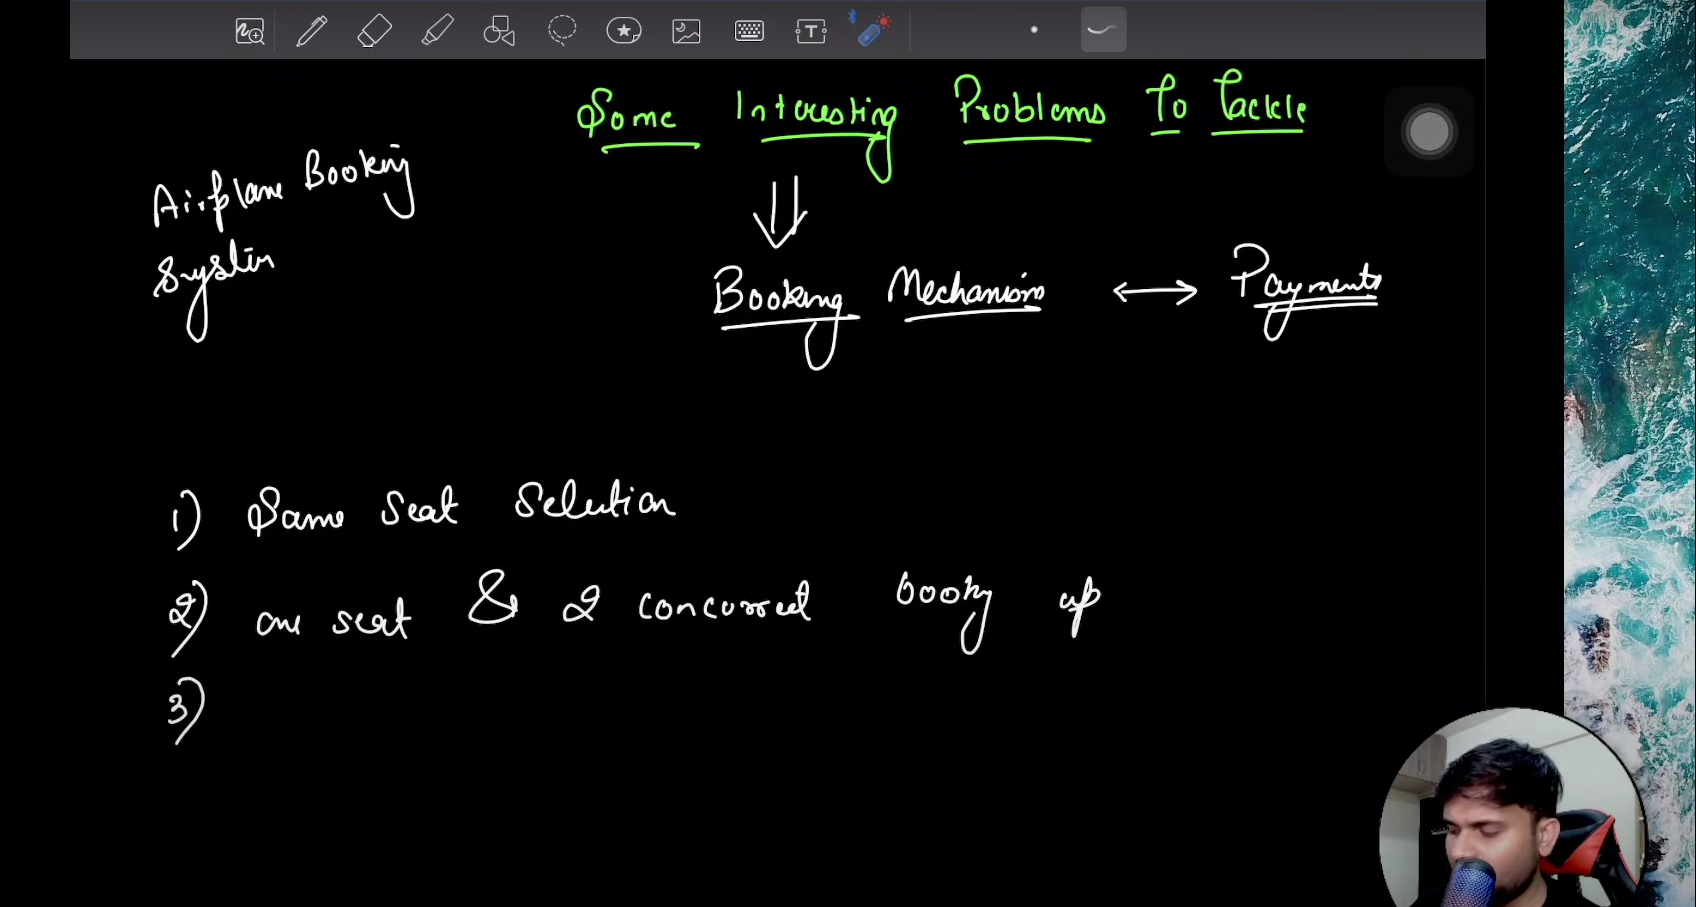 Some Interesting Problems To Tackle
Airplane Booking
System
Booking Mechanism ↔ Payments
1) Same Seat Selection
2) one seat & 2 concurrent
3)